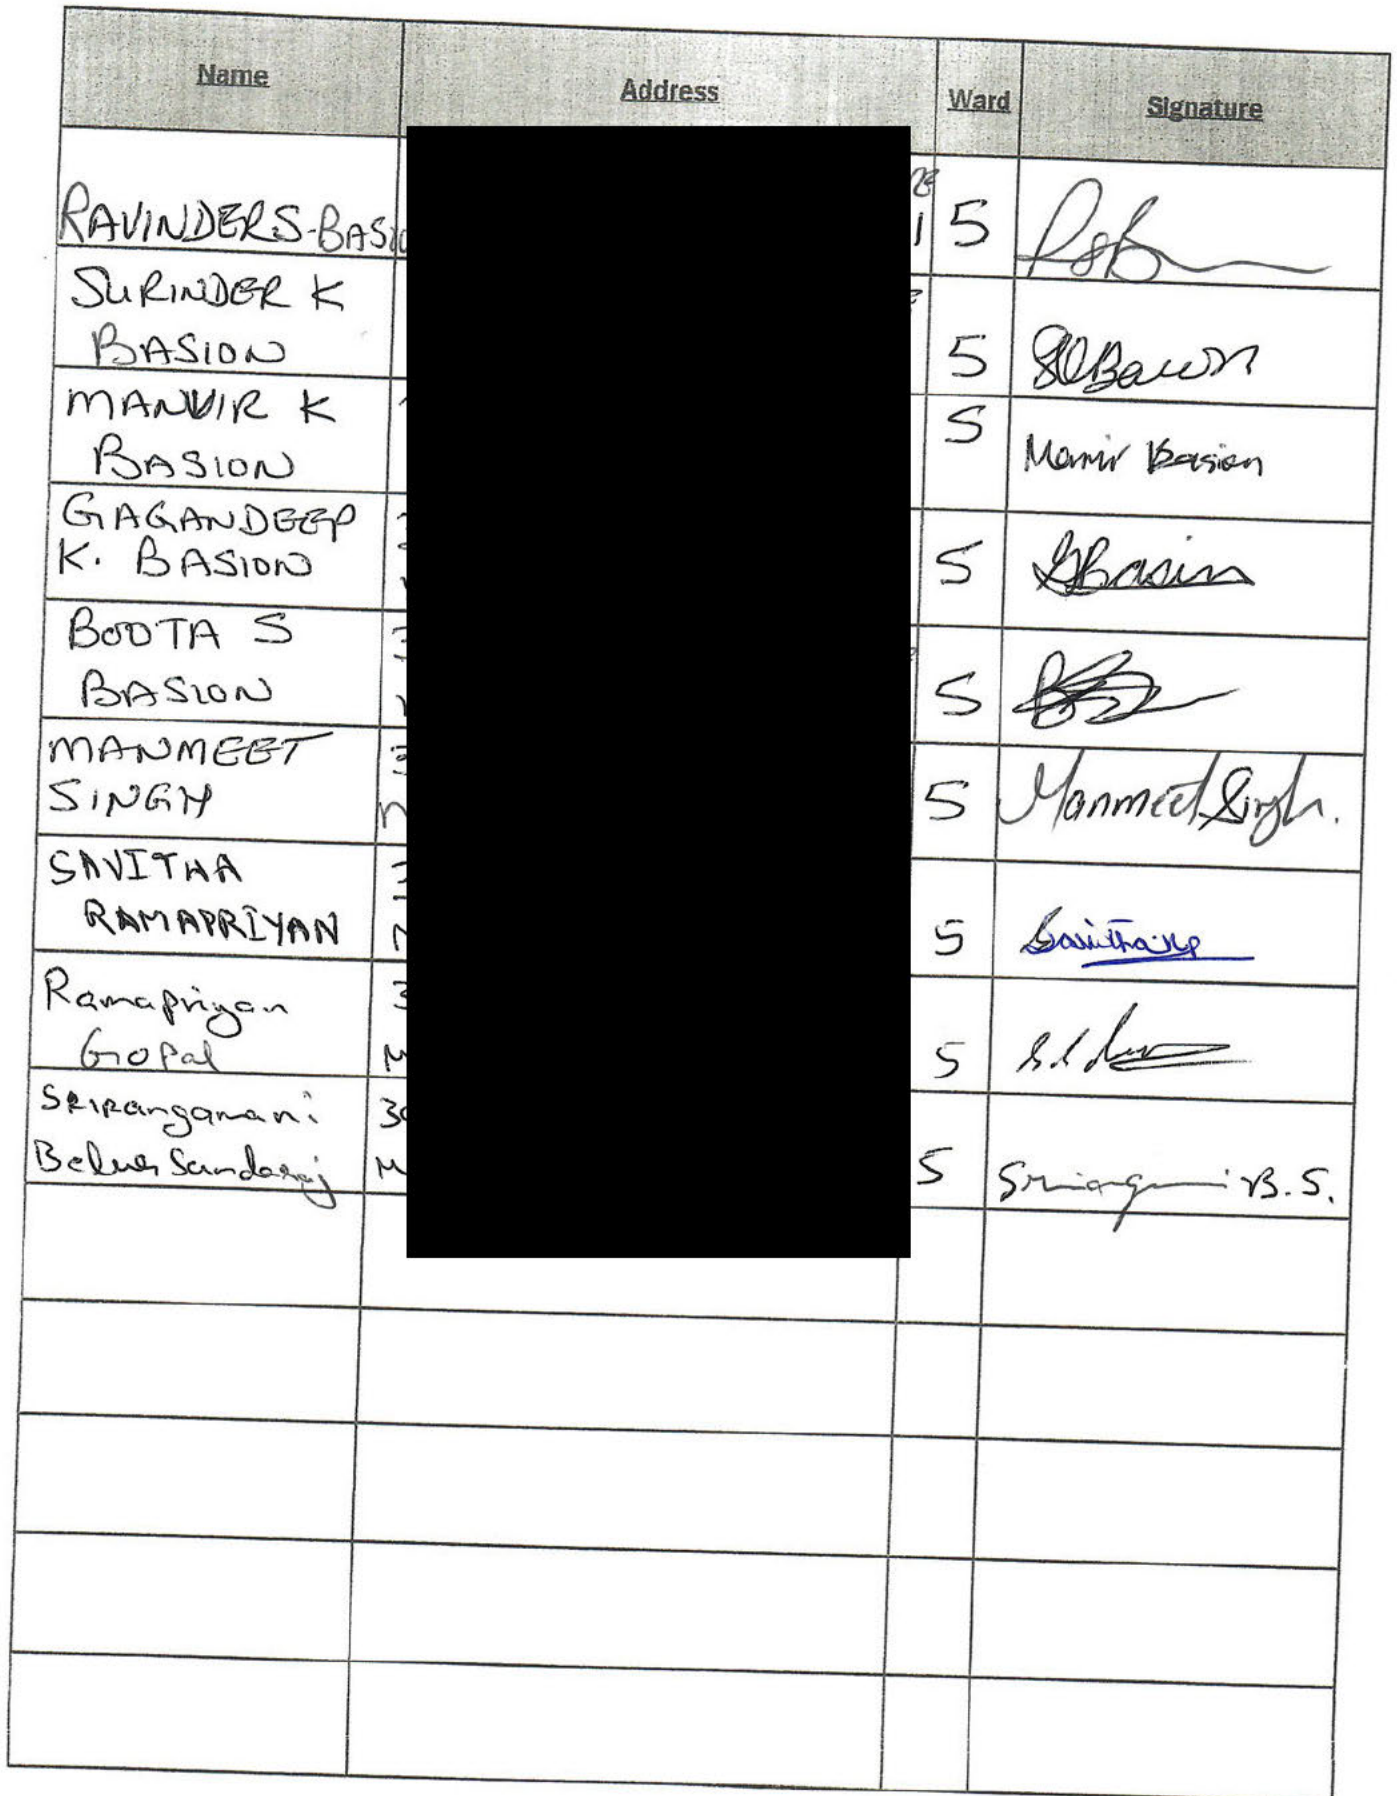 Name Address Ward Signature
RAVINDER S-BASIO 5
SURINDER K
BASION 5
MANVIR K
BASION 5 Manvir Basion
GAGANDEEP
K. BASION 5 GBasion
BOOTA S
BASION 5
MANMEET
SINGH 5 Manmeet Singh.
SAVITHA
RAMAPRIYAN 5
Ramapriyan
Gopal 5
Srirangamani
Belur Sundaraj 5 B.S.